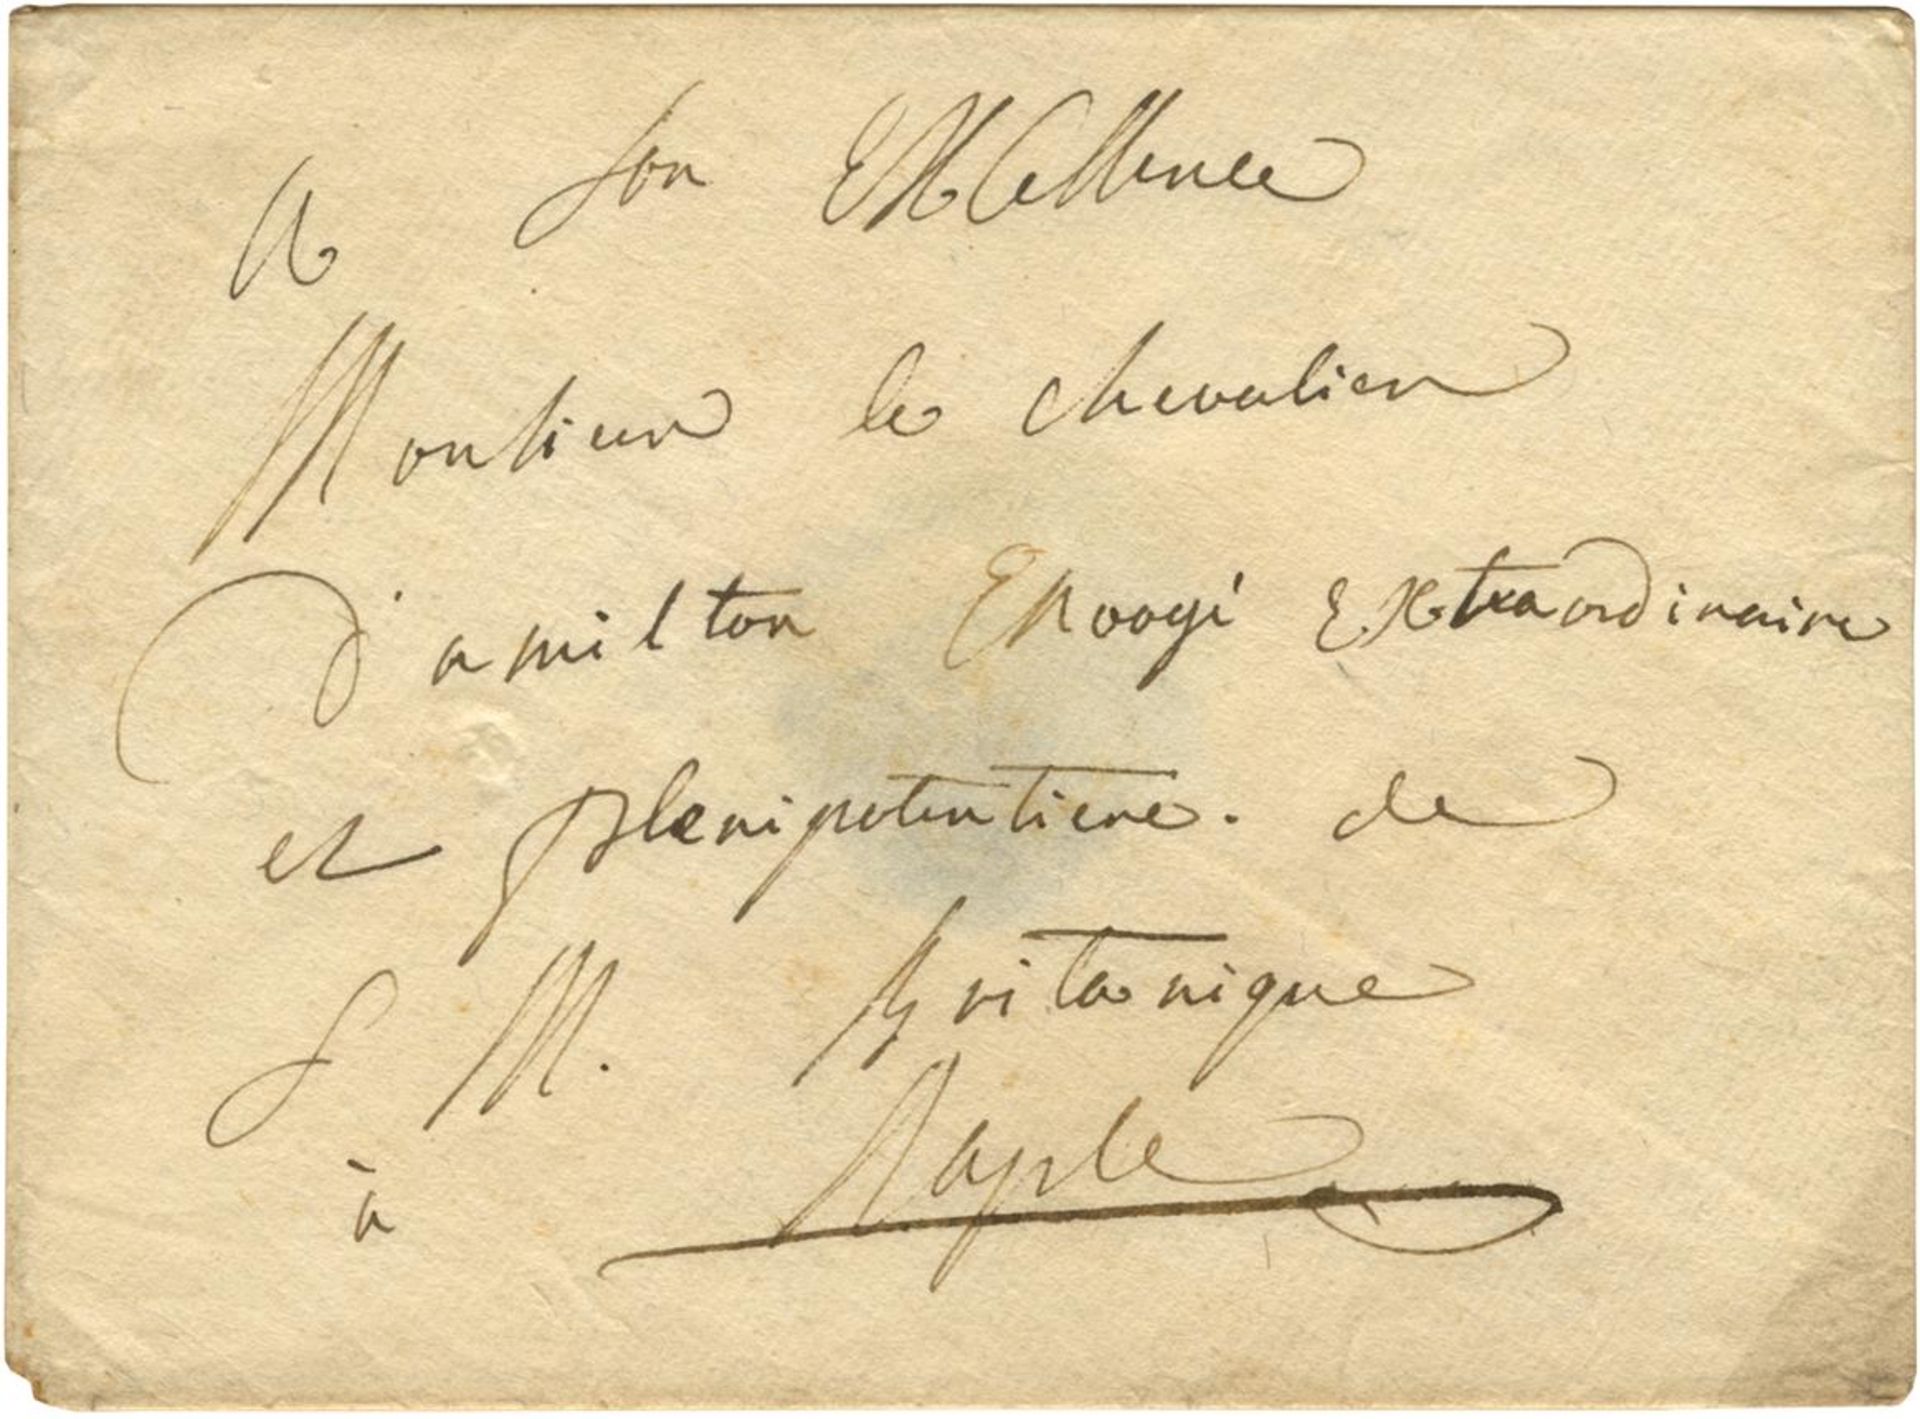 A Son EXCellence
Monsieur le chevalier
D'amilton Envoyé EXtraordinaire
et plenipotentiere. de
S M. Britanique
à Naple